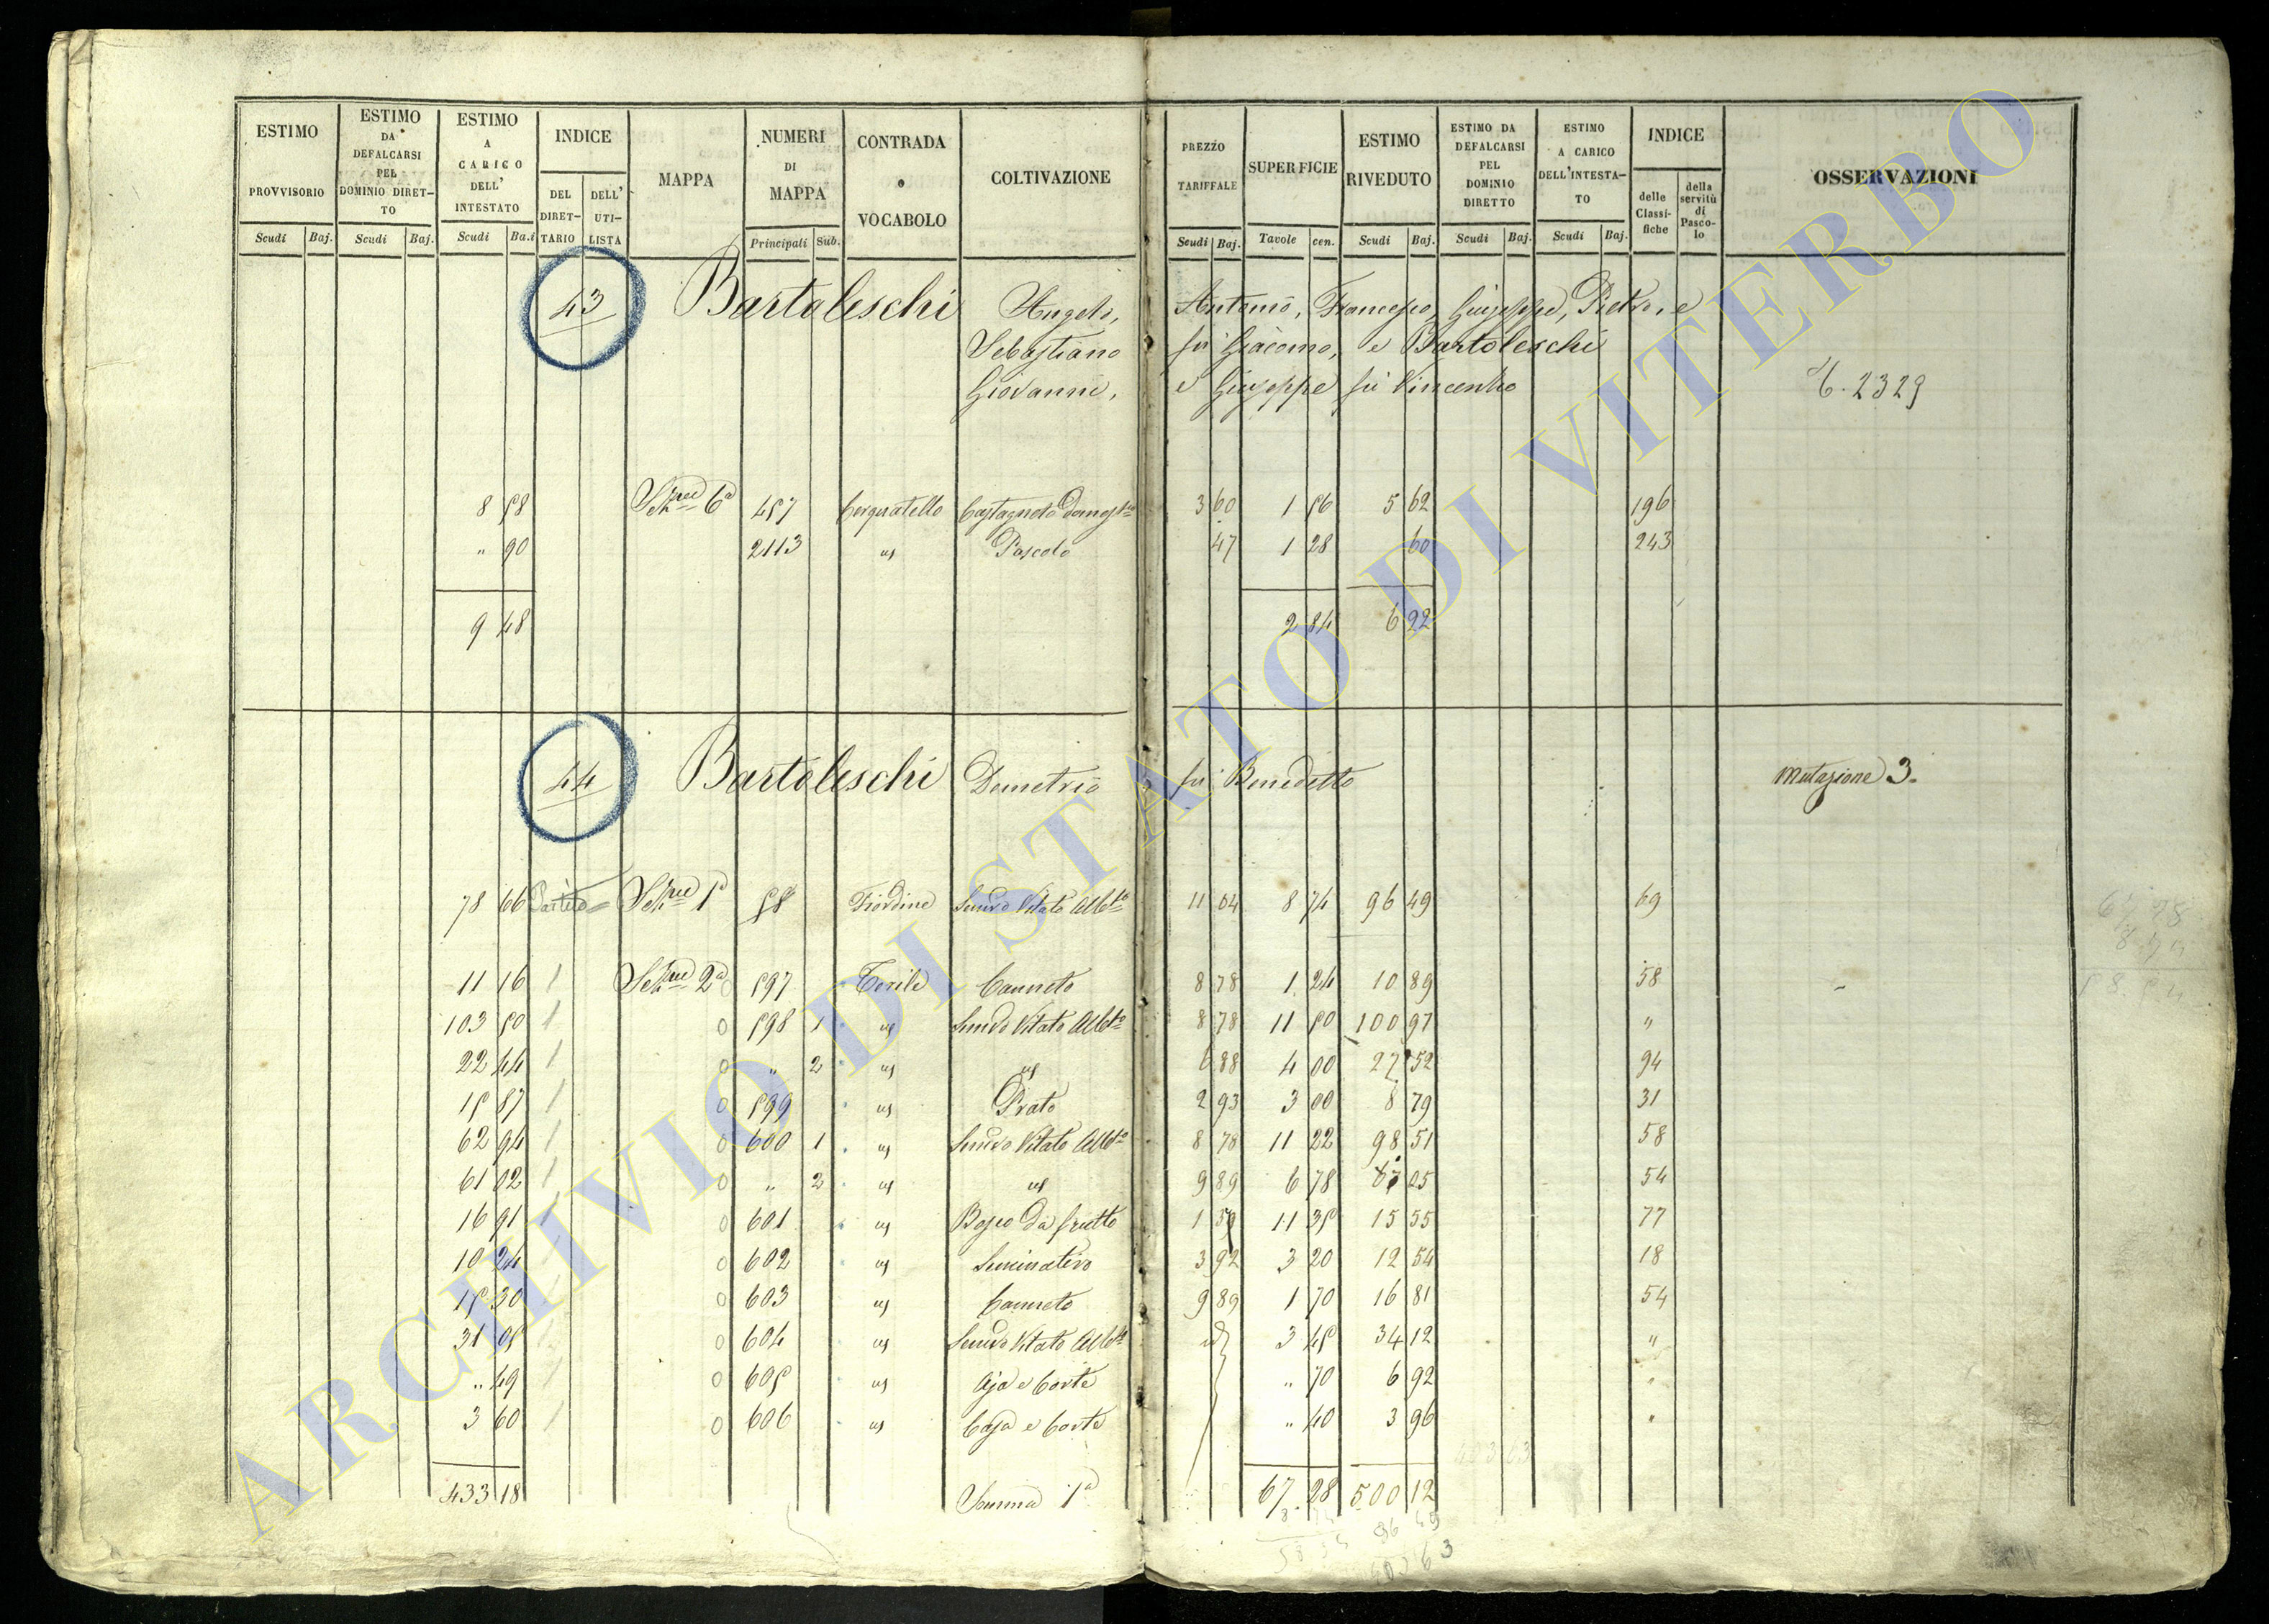 ESTIMO PROVVISORIO Scudi Baj.
ESTIMO DA DEFALCARSI PEL DOMINIO DIRET-TO Scudi Baj.
ESTIMO A CARICO DELL' INTESTATO Scudi Ba.i
INDICE DEL DIRET-TARIO DELL' UTI-LISTA
MAPPA
NUMERI DI MAPPA Principali Sub.
CONTRADA o VOCABOLO
COLTIVAZIONE
PREZZO TARIFFALE Scudi Baj.
SUPERFICIE Tavole cen.
ESTIMO RIVEDUTO Scudi Baj.
ESTIMO DA DEFALCARSI PEL DOMINIO DIRETTO Scudi Baj.
ESTIMO A CARICO DELL'INTESTA-TO Scudi Baj.
INDICE delle Classi-fiche della servitù di Pasco-lo
OSSERVAZIONI
43 Bartoleschi Angelo, Antonio, Francesco, Giuseppe, Pietro, e
Sebastiano fu Giacomo, e Bartoleschi
Giovanni, e Giuseppe fu Vincenzo
2329
8 58 6a 457 Cerquatello Castagneto 3 60 1 56 5 62 196
" 90 2113 " Pascolo 47 1 28 60 243
9 48 2 84 6 22
44 Bartoleschi Demetrio fu Benedetto Mutazione 3.
78 66 1a 58 Fiordine Semvo Vitato Albto 11 04 8 74 96 49 69
11 16 1 2a 0 597 Canneto 8 78 1 24 10 89 58
103 50 1 0 598 1 " Semvo Vitato Albto 8 78 11 50 100 97 "
22 44 1 0 " 2 " " 6 88 4 00 27 52 94
15 87 1 0 599 " Prato 2 93 3 00 8 79 31
62 94 1 0 600 1 " Semvo Vitato Albto 8 78 11 22 98 51 58
61 02 1 0 " 2 " " 9 89 6 78 67 05 54
16 91 1 0 601 " Bosco da frutto 1 39 11 35 15 55 77
10 24 0 602 " Seminativo 3 92 3 20 12 54 18
15 30 0 603 " Canneto 9 89 1 70 16 81 54
31 05 0 604 " Semvo Vitato Albto id 3 45 34 12 "
" 49 0 605 " Aja e Corte " 70 6 92 "
3 60 1 0 606 " Casa e Corte " 40 3 96 "
433 18 Somma 1a 67 28 500 12
96 49
ARCHIVIO DI STATO DI VITERBO